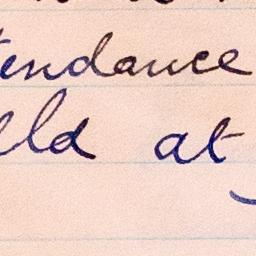 tendance
eld at